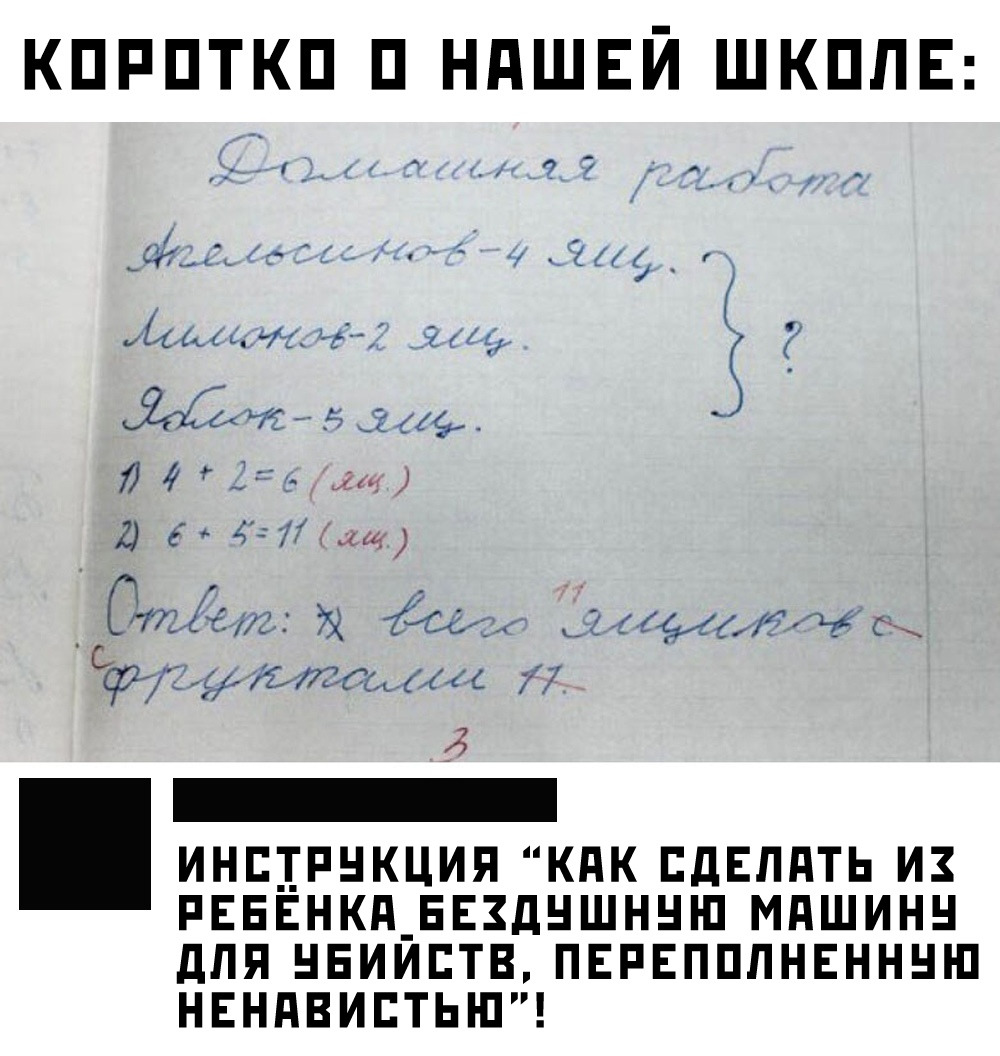 КОРОТКО О НАШЕЙ ШКОЛЕ:
Домашняя работа
Апельсинов-4 ящ.
Лимонов-2 ящ.
?
Яблок-5 ящ.
1) 4 + 2=6 (ящ.)
2) 6 + 5=11 (ящ.)
11
Ответ: всего ящиков с
с фруктами 11.
3
ИНСТРУКЦИЯ “КАК СДЕЛАТЬ ИЗ
РЕБЁНКА БЕЗДУШНУЮ МАШИНУ
ДЛЯ УБИЙСТВ, ПЕРЕПОЛНЕННУЮ
НЕНАВИСТЬЮ”!